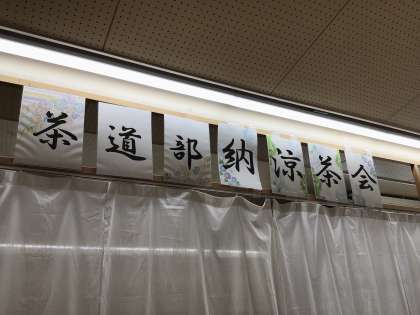 茶道部納涼茶会